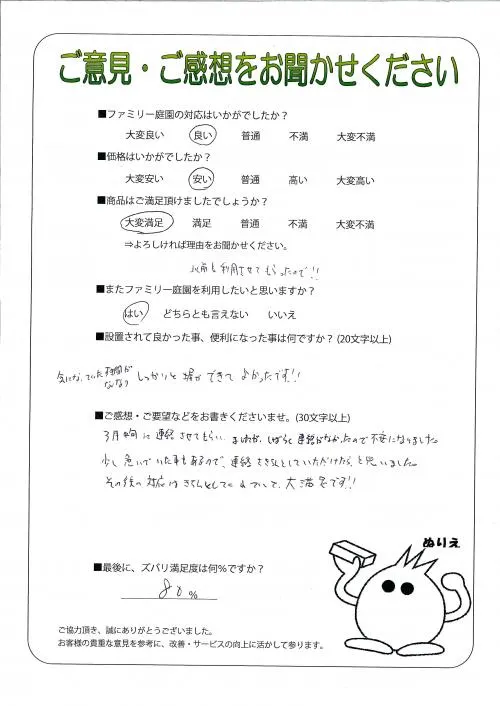 ご意見・ご感想をお聞かせください
■ファミリー庭園の対応はいかがでしたか？
大変良い 良い 普通 不満 大変不満
■価格はいかがでしたか？
大変安い 安い 普通 高い 大変高い
■商品はご満足頂けましたでしょうか？
大変満足 満足 普通 不満 大変不満
⇒よろしければ理由をお聞かせください。
以前も利用させてもらったので!!
■またファミリー庭園を利用したいと思いますか？
はい どちらとも言えない いいえ
■設置されて良かった事、便利になった事は何ですか？(20文字以上)
気になっていた
しっかりと 塀が できて よかったです!!
■ご感想・ご要望などをお書きくださいませ。(30文字以上)
3月 に連絡させてもらい、ましたが、しばらく連絡がなかったので不安になりました
少し急いでいた事もあるので、連絡をきちんとしていただけたら、と思いました。
その後の対応はきちんとして で、大満足です!!
■最後に、ズバリ満足度は何％ですか？
80%
ぬりえ
ご協力頂き、誠にありがとうございました。
お客様の貴重な意見を参考に、改善・サービスの向上に活かして参ります。